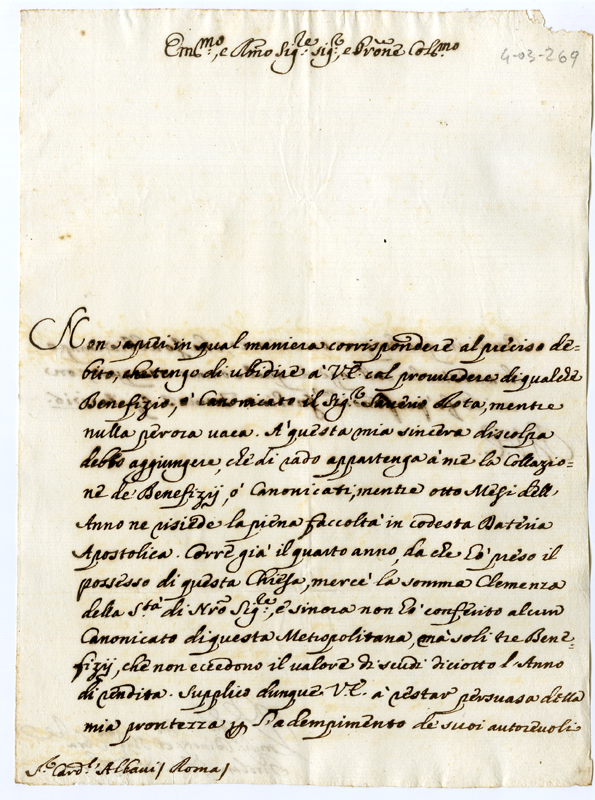 Em̃mo, e Rm̃o Sigre Sigr, e Pron̄e Colmo
4-03-269
Non saprei in qual maniera corrispondere al preciso de=
bito, che tengo di ubidire à V.E. col provvedere di qualche
Benefizio, ò Canonicato il Sigr Saverio Rota, mentre
nulla perora vaca. A' questa mia sincera discolpa
debbo aggiungere, che di rado appartenga à me la Collazio=
ne de Benefizij, ò Canonicati, mentre otto Mesi dell'
Anno ne risiede la piena facoltà in codesta Dateria
Apostolica. Corre già il quarto anno, da che hò preso il
possesso di questa Chiesa, mercè la somma Clemenza
della Stà di Nrō Sigre, e sinora non hò conferito alcun
Canonicato di questa Metropolitana, mà soli tre Bene=
fizij, che non eccedono il valore di scudi diciotto l'Anno
di rendita. Supplico dunque V.E. à restar persuasa della
mia prontezza per l'adempimento de suoi autorevoli
Sr Cardl Albani / Roma /